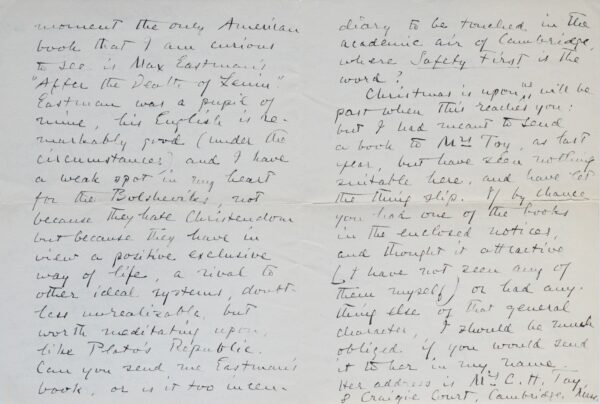 moment the only American
book that I am curious
to see is Max Eastman's
"After the Death of Lenin".
Eastman was a pupil of
mine, his English is re-
markably good (under the
circumstances) and I have
a weak spot in my heart
for the Bolsheviks, not
because they hate Christendom
but because they have in
view a positive exclusive
way of life, a rival to
other ideal systems, doubt-
less unrealizable, but
worth meditating upon,
like Plato's Republic.
Can you send me Eastman's
book, or is it too incen-
diary to be touched in the
academic air of Cambridge,
where Safety First is the
word?
Christmas is upon us & will be
past when this reaches you:
but I had meant to send
a book to Mrs Toy, as last
year, but have seen nothing
suitable here, and have let
the thing slip. If by chance
you had one of the books
in the enclosed notices,
and thought it attractive
(I have not seen any of
them myself) or had any-
thing else of that general
character, I should be much
obliged if you would send
it to her in my name.
Her address is Mrs C. H. Toy,
8 Craigie Court, Cambridge, Mass.